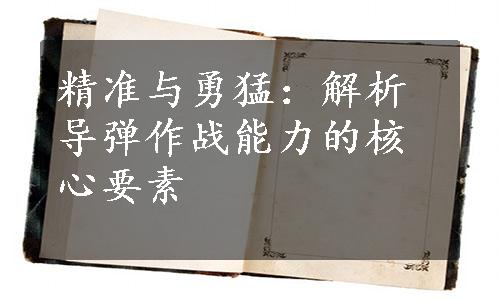 精准与勇猛：解析
导弹作战能力的核
心要素